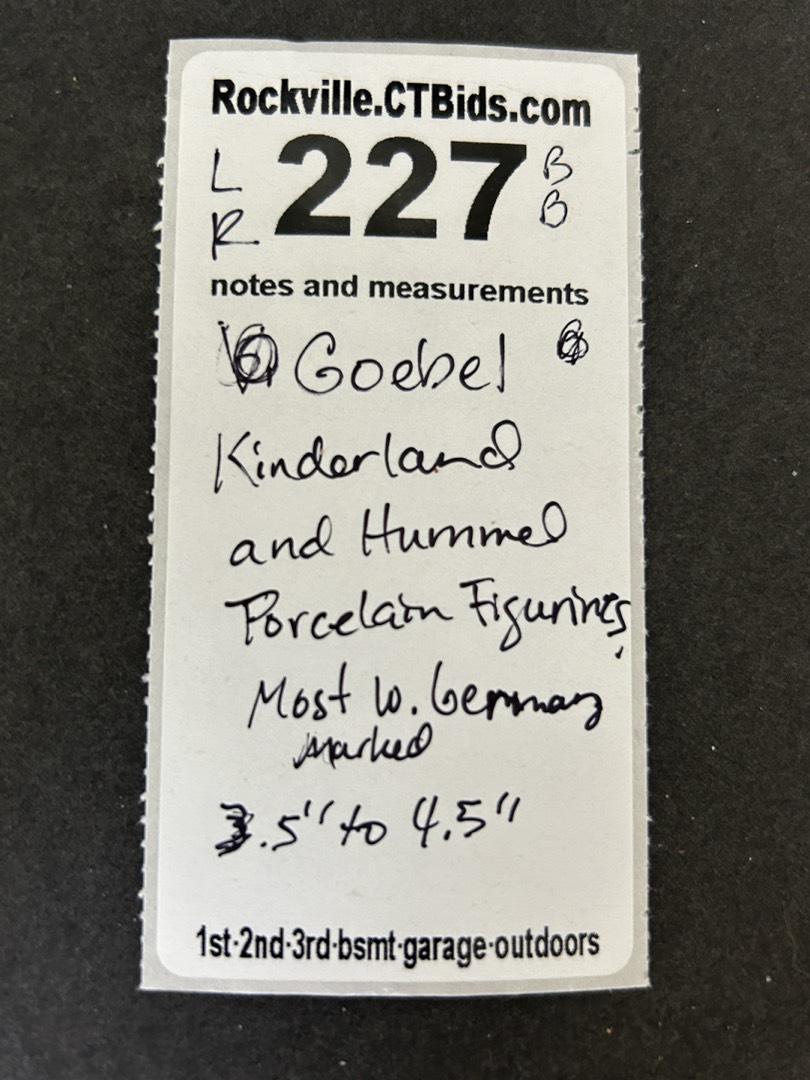 Rockville.CTBids.com
L R 227 B B
notes and measurements
Goebel
Kinderland
and Hummel
Porcelain Figurines,
Most W. Germany
marked
3.5" to 4.5"
1st·2nd·3rd·bsmt·garage·outdoors